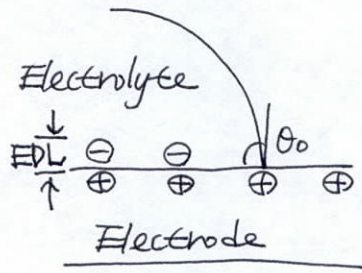 Electrolyte
EDL ⊖ ⊖ θ₀
⊕ ⊕ ⊕ ⊕
Electrode